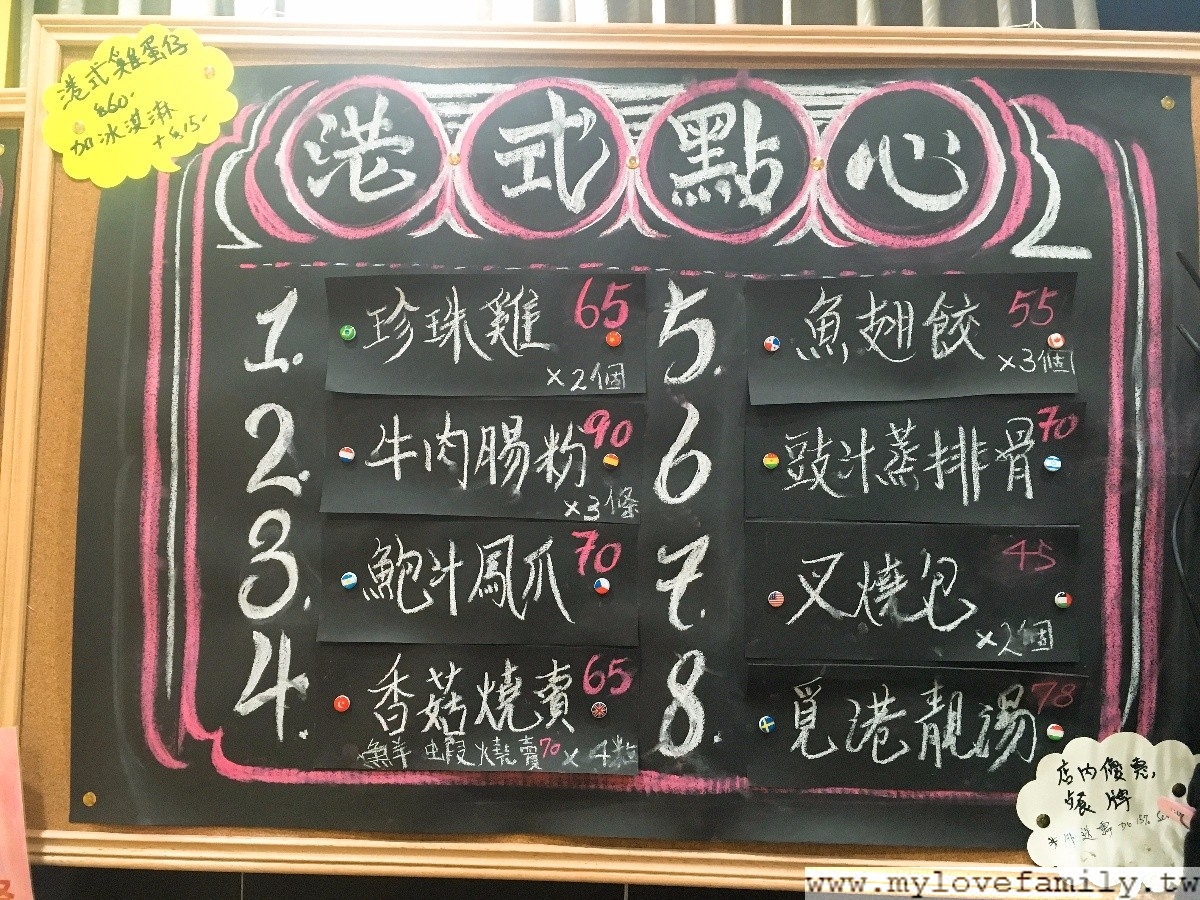 港式雞蛋仔
$60-
加冰淇淋
+$15-
港式點心
1. 珍珠雞 65
×2個
2. 牛肉腸粉 90
×3條
3. 鮑汁鳳爪 70
4. 香菇燒賣 65
鮮蝦燒賣 70 × 4粒
5. 魚翅餃 55
×3個
6. 豉汁蒸排骨 70
7. 叉燒包 45
×2個
8. 覓港靚湯 78
店內優惠,
加15%
www.mylovefamily.tw